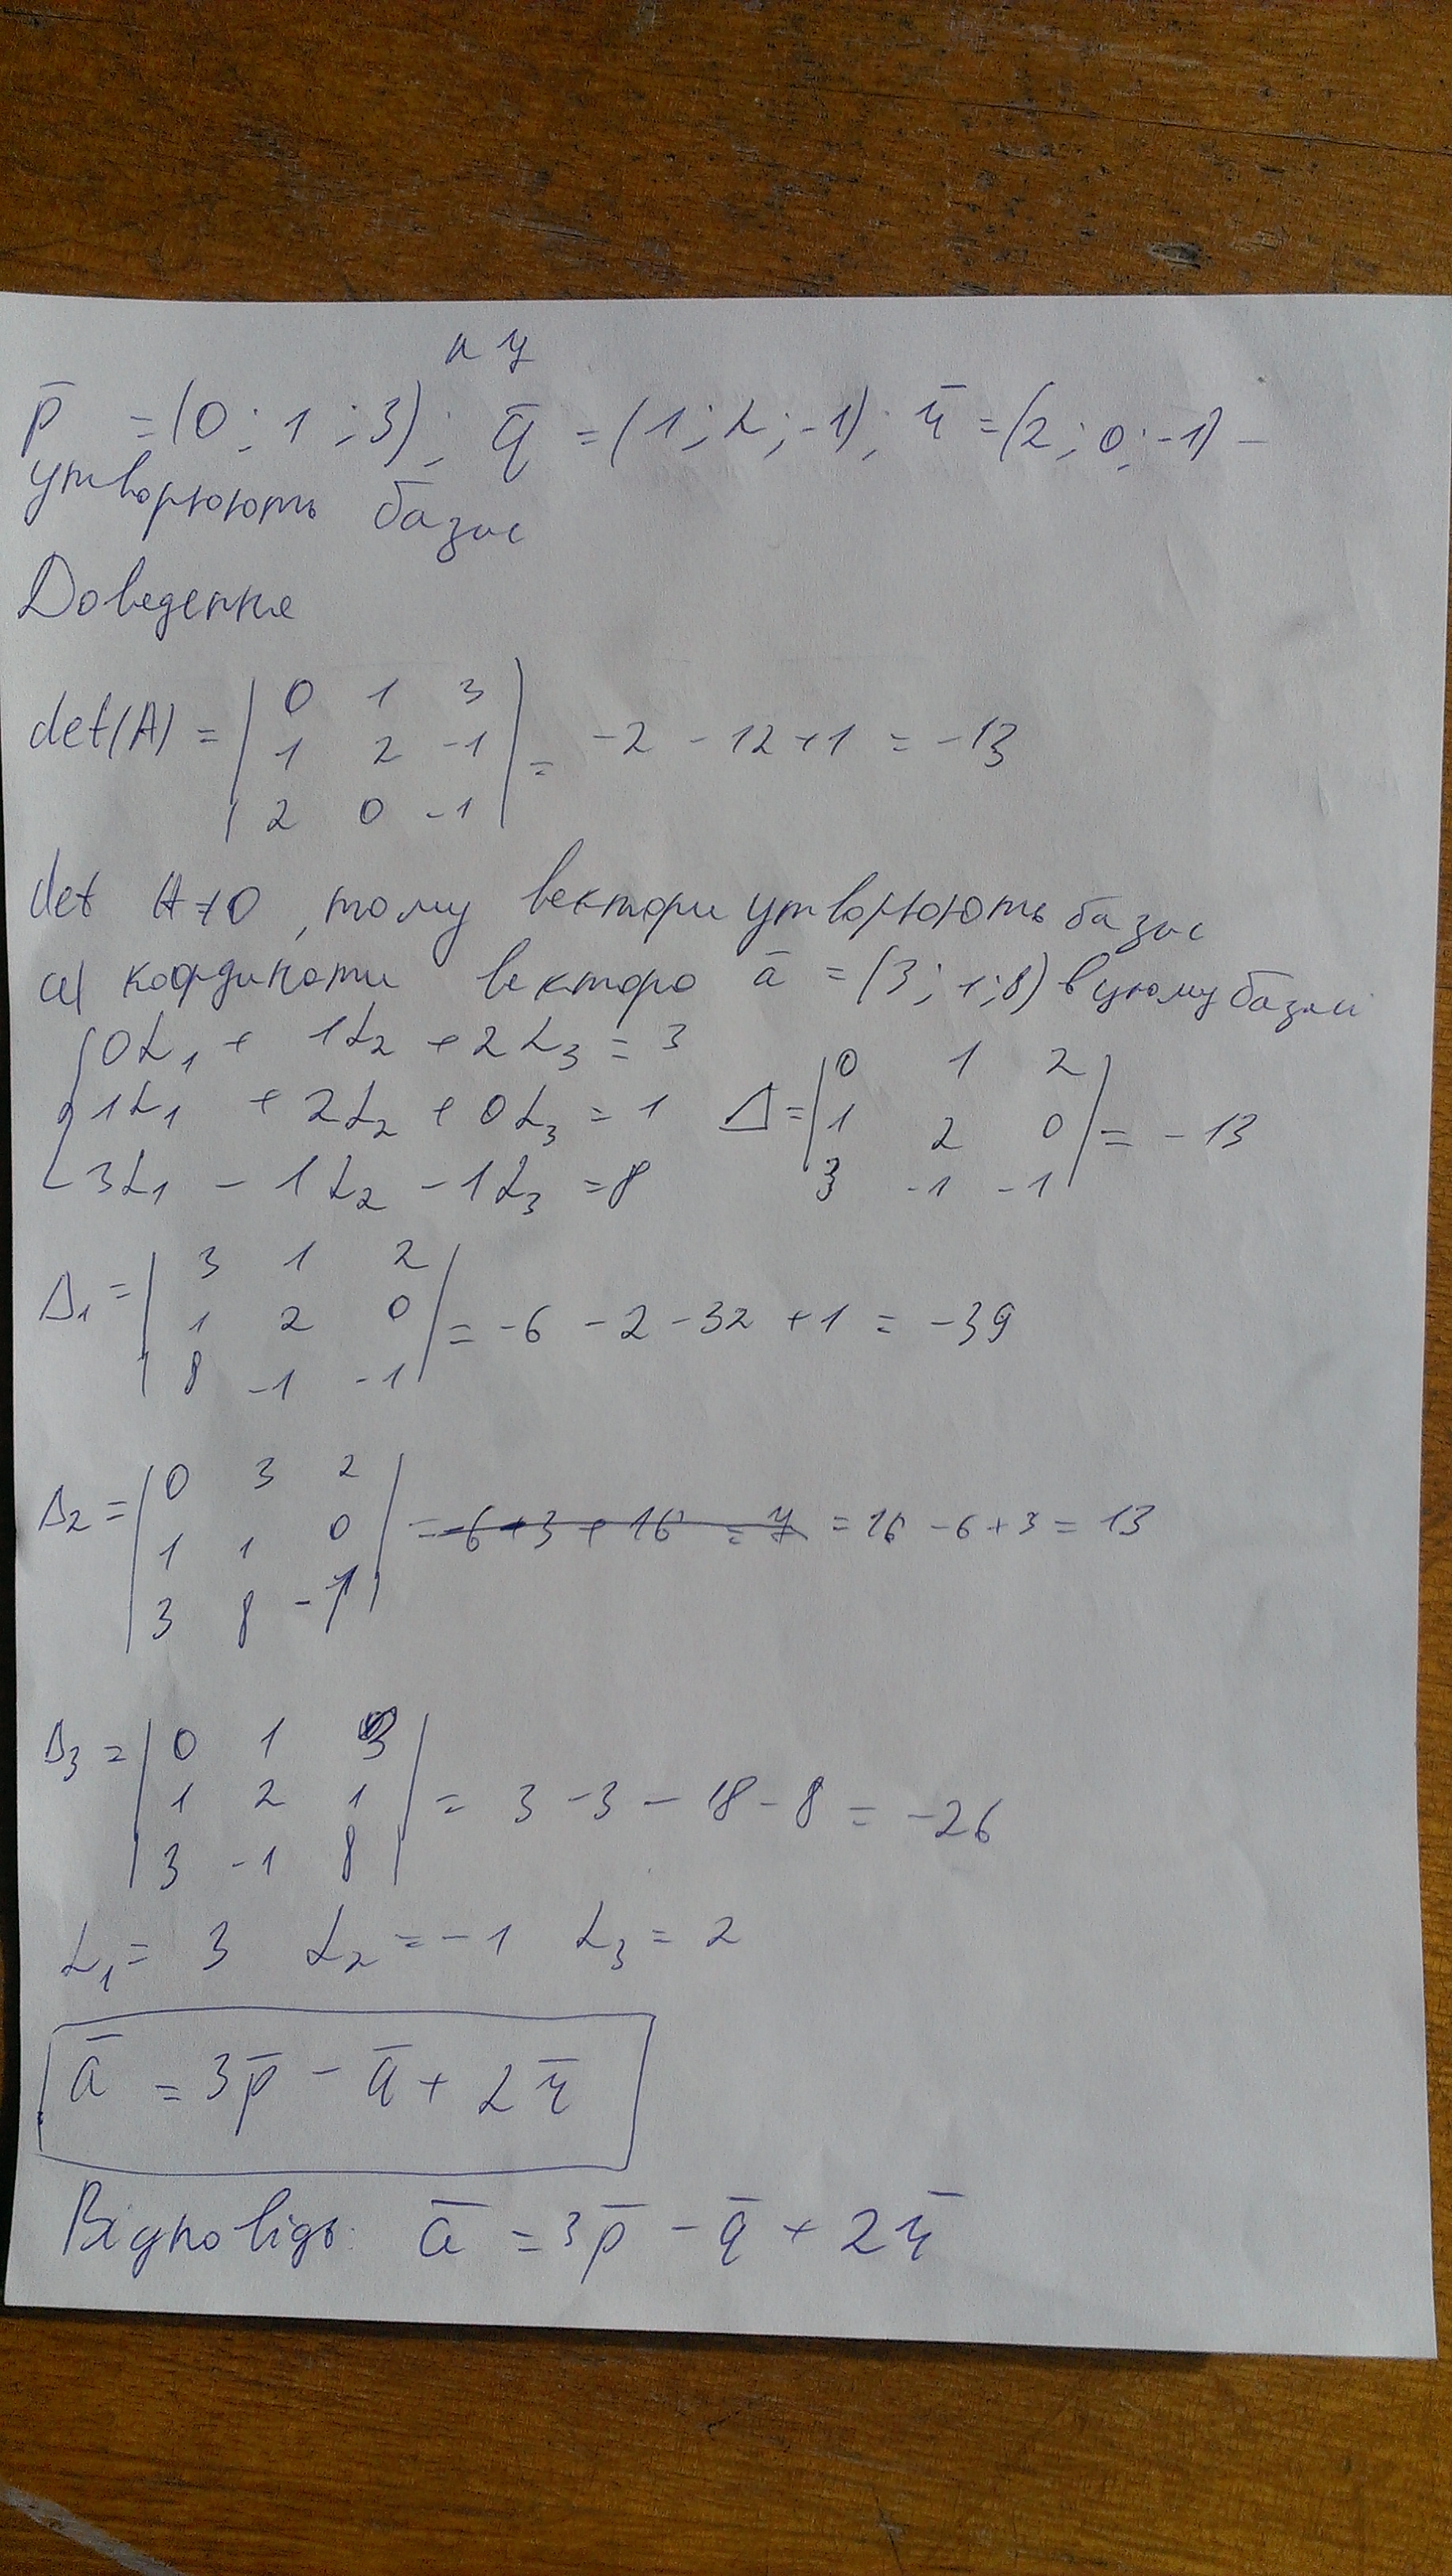 n 4
p̄ = (0; 1; 3); q̄ = (1; 2; -1); r̄ = (2; 0; -1) -
утворюють базис
Доведення
det(A) = | 0 1 3 | = -2 - 12 + 1 = -13
| 1 2 -1 |
| 2 0 -1 |
det A ≠ 0, тому вектори утворюють базис
а) координати вектора ā = (3; 1; 8) в цьому базисі
0α₁ + 1α₂ + 2α₃ = 3
1α₁ + 2α₂ + 0α₃ = 1
3α₁ - 1α₂ - 1α₃ = 8
Δ = | 0 1 2 | = -13
| 1 2 0 |
| 3 -1 -1 |
Δ₁ = | 3 1 2 | = -6 - 2 - 32 + 1 = -39
| 1 2 0 |
| 8 -1 -1 |
Δ₂ = | 0 3 2 | = 16 - 6 + 3 = 13
| 1 1 0 |
| 3 8 -1 |
Δ₃ = | 0 1 3 | = 3 - 3 - 18 - 8 = -26
| 1 2 1 |
| 3 -1 8 |
α₁ = 3 α₂ = -1 α₃ = 2
ā = 3p̄ - q̄ + 2r̄
Відповідь: ā = 3p̄ - q̄ + 2r̄